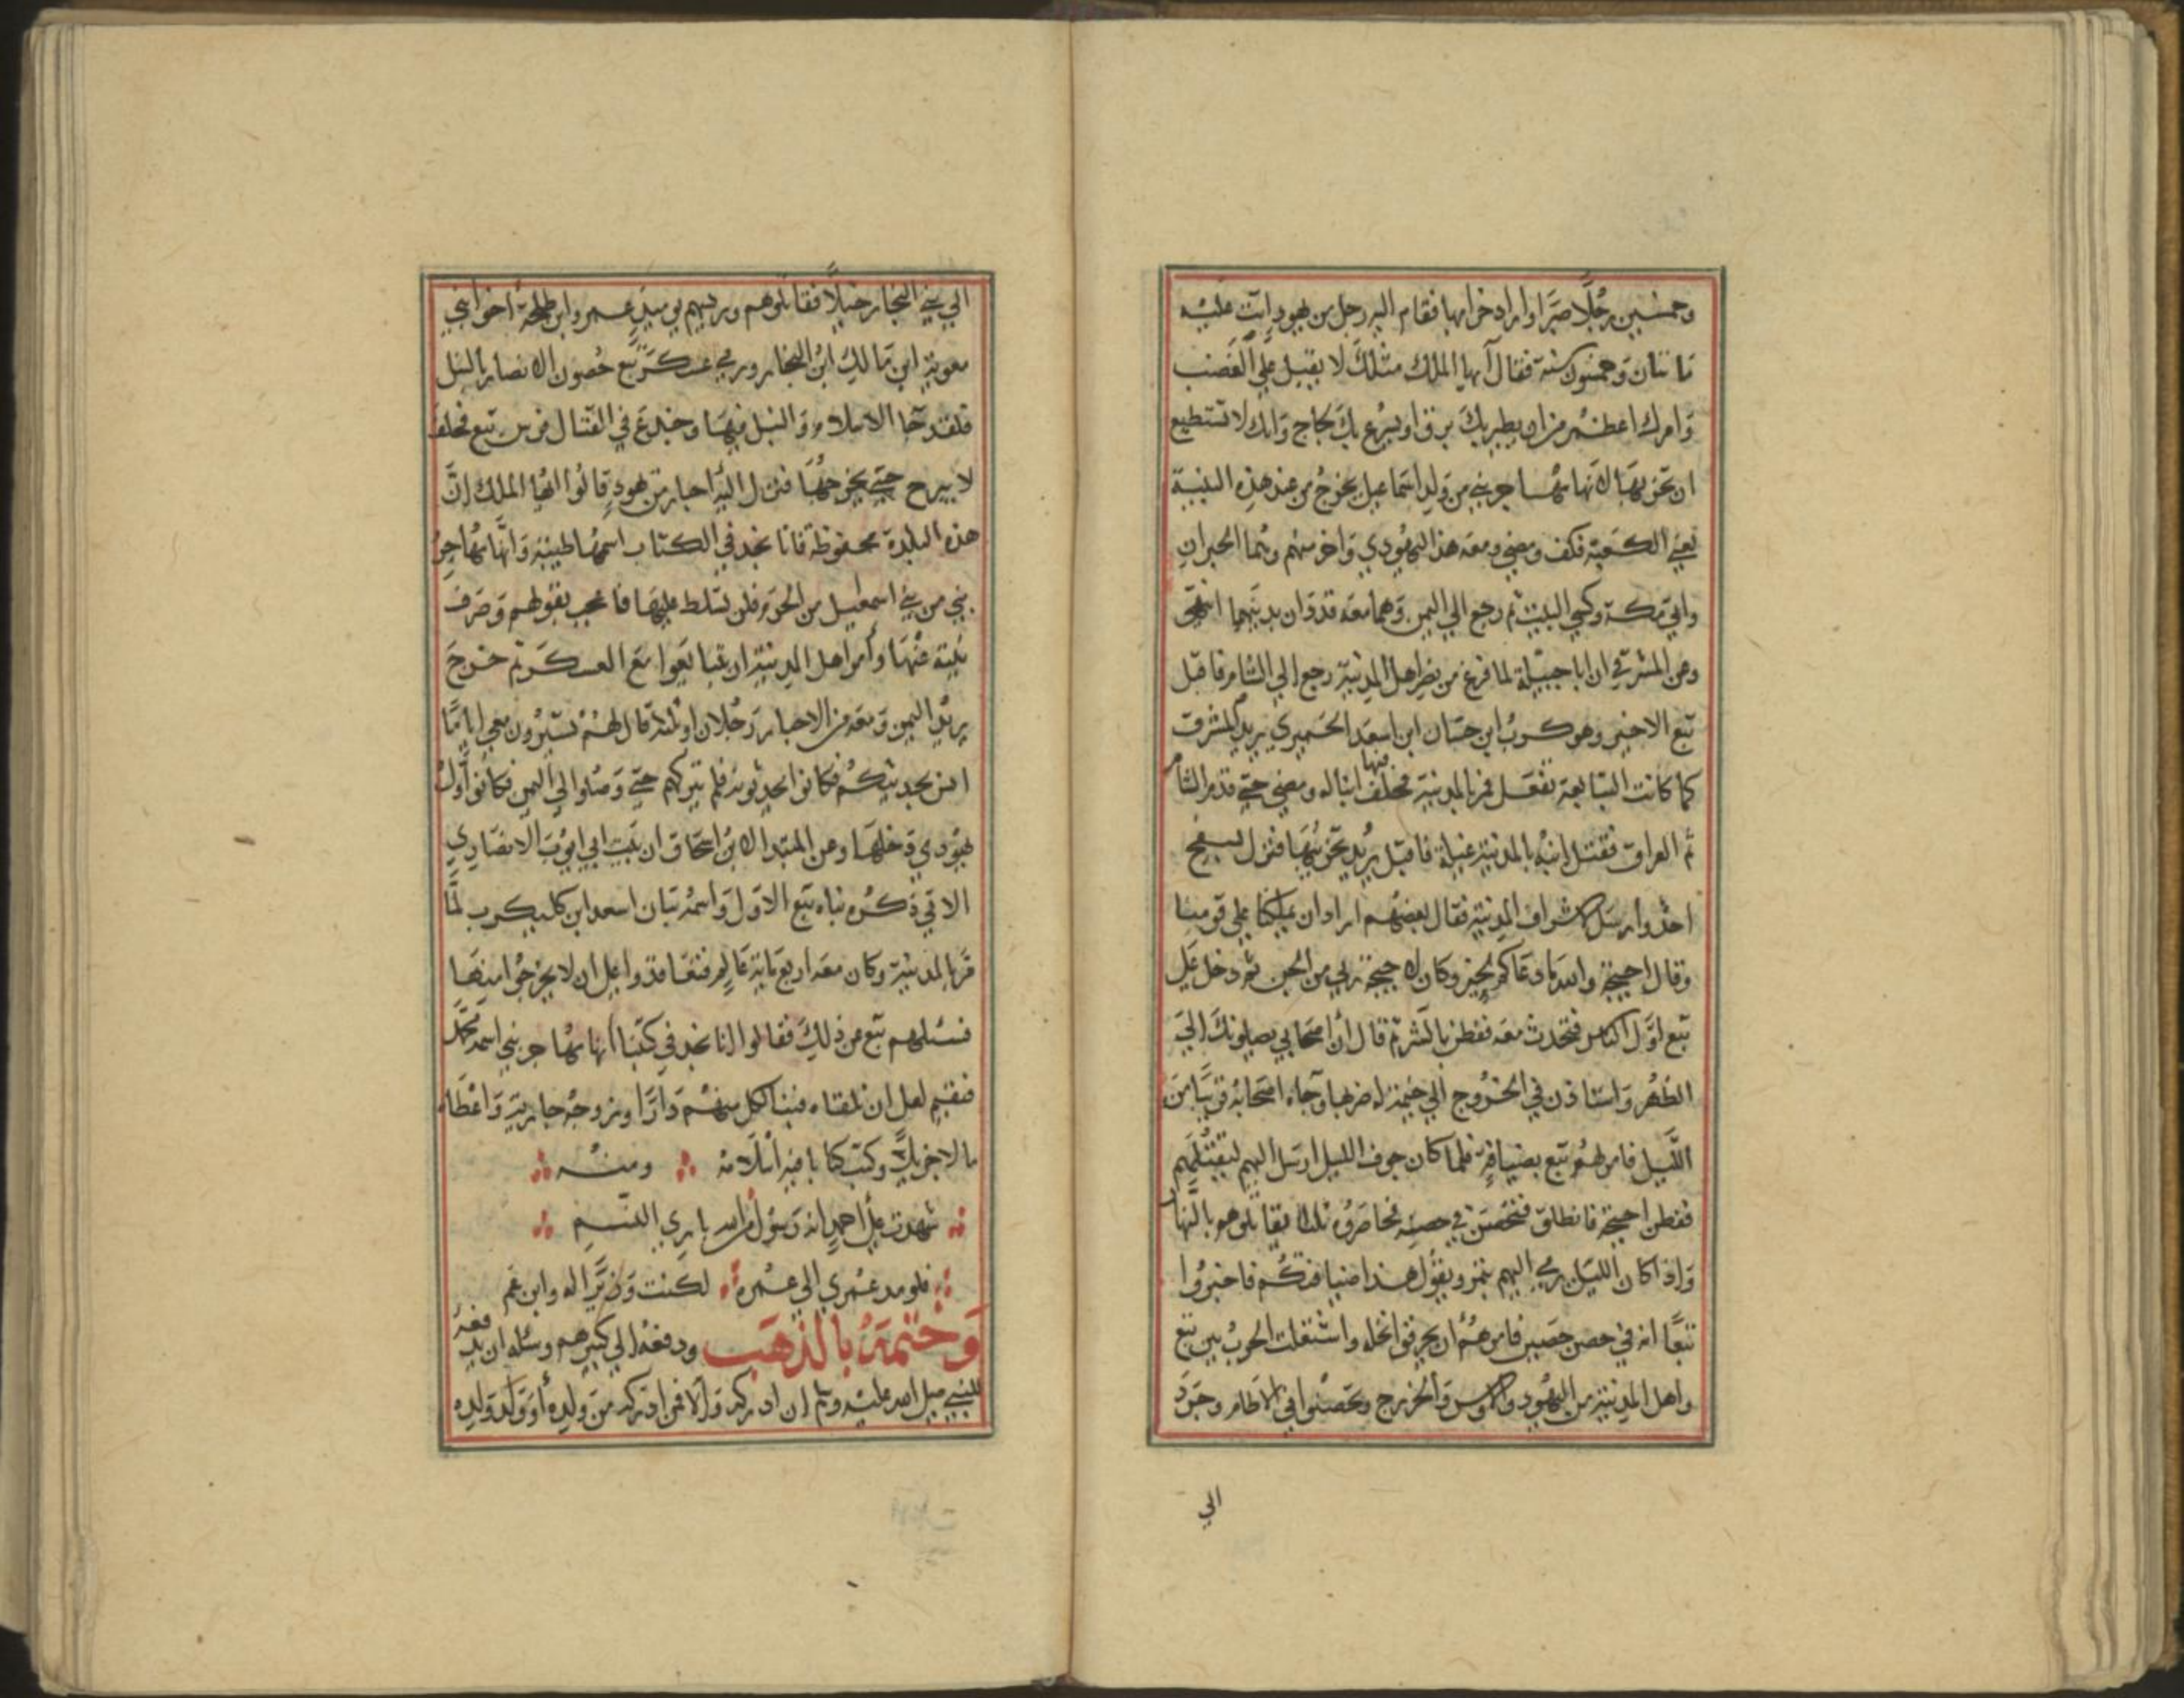 وخمسين رجلا صبرا واراد خرابها فقام اليه رجل من يهود اتت عليه
مائتان وخمسون سنة فقال ايها الملك مثلك لا يقبل على الغضب
وامرك اعظم من ان يطير بك برق او يسرع بك لجاج وانك لا تستطيع
ان تخربها لانها مهاجر نبي من ولد اسماعيل يخرج من عند هذه البنية
يعني الكعبة فكف ومضى ومعه هذا اليهودي واخر منهم وهما الحبران
واتى مكة وكسى البيت ثم رجع الي اليمن وهما معه قد دان بدينهما انتهى
وعن المشرقي ان ابا جبيلة لما فرغ من نصر اهل المدينة رجع الي الشام فاقبل
تبع الاخير وهو كرب ابن حسان ابن اسعد الحميري يريد المشرق
كما كانت التبابعة تفعل فمر بالمدينة فخلف فيها ابنا له ومضى حتى قدم الشام
ثم العراق فقتل ابنه بالمدينة غيلة فاقبل يريد تخريبها فنزل بسفح
احد وارسل لاشراف المدينة فقال بعضهم اراد ان يملكنا على قومنا
وقال احيحة والله ما دعاكم لخير وكان لاحيحة رئي من الجن ثم دخل على
تبع اول الناس فتحدث معه ففطن بالشر ثم قال ان اصحابي يصلونك الى
الظهر واستاذن في الخروج الي خيمة له ضربها وجاء اصحابه قريبا من
الليل فامر لهم تبع بضيافة فلما كان جوف الليل ارسل اليهم ليقتلهم
ففطن احيحة فانطلق فتحصن في حصنه فحاصروه ثلاثا يقاتلوهم بالنهار
واذا كان الليل رمي اليهم بتمر ويقول هذا ضيافتكم فاخبروا
تبعا انه في حصن حصين فامرهم ان يحرقوا نخله واشتعلت الحرب بين تبع
واهل المدينة من اليهود والاوس والخزرج وتحصنوا في الاطام وجرد
الي
الي بني النجار خيلا فقاتلوهم ورئيسهم يوميذ عمرو ابن طلحة اخو ابني
معوية ابن مالك ابن النجار ورمي عسكر تبع حصون الانصار بالنبل
فلقد جا الاسلام والنبل فيها وجدع في القتال فرس تبع فحلف
لا يبرح حتى يخربها فنزل اليه احبار من يهود قالوا ايها الملك ان
هذه البلدة محفوظة فانا نجد في الكتاب اسمها طيبة وانها مهاجر
نبي من بني اسمعيل من الحرم فلن تسلط عليها فاعجب بقولهم وصرف
نيته عنها وامر اهل المدينة ان يتبايعوا مع العسكر ثم خرج
يريد اليمن ومعه من الاحبار رجلان او ثلثة قال لهم تسيرون معي اياما
انس بحديثكم فكانوا يحدثونه فلم يتركهم حتى وصلوا الي اليمن فكانوا اول
يهودي دخلها وعن المبتدا لابن اسحاق ان بيت ابي ايوب الانصاري
الاتي ذكره بناه تبع الاول واسمه تبان اسعد ابن كليكرب لما
مر بالمدينة وكان معه اربعماية عالم فتعاقدوا على ان لا يخرجوا منها
فسئلهم تبع من ذلك فقالوا انا نجد في كتبنا انها مهاجر نبي اسمه محمد
فنقيم لعل ان نلقاه فبنا لكل منهم دارا وزوجه جارية واعطاه
مالا جزيلا وكتب كتابا فيه اسلامه ومنه
شهدت على احمد انه رسول من الله باري النسم
فلو مد عمري الي عمره لكنت وزيرا له وابن عم
وختمه بالذهب ودفعه الي كبيرهم وسئله ان يدفعه
للنبي صلى الله عليه وسلم ان ادركه والا فمن ادركه من ولده او ولد ولده